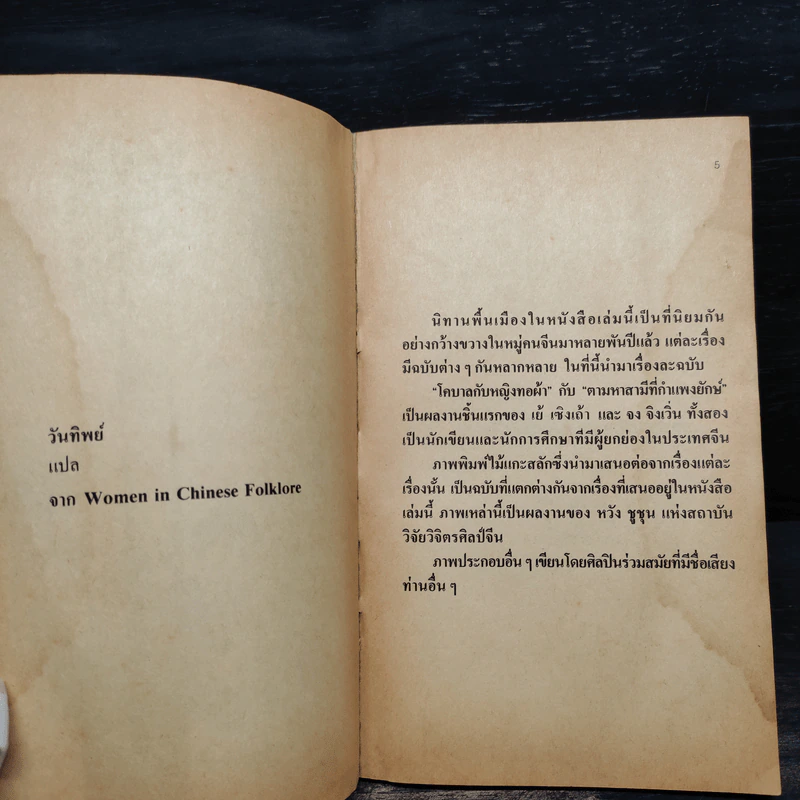 วันทิพย์
แปล
จาก Women in Chinese Folklore
5
นิทานพื้นเมืองในหนังสือเล่มนี้เป็นที่นิยมกัน
อย่างกว้างขวางในหมู่คนจีนมาหลายพันปีแล้ว แต่ละเรื่อง
มีฉบับต่าง ๆ กันหลากหลาย ในที่นี้นำมาเรื่องละฉบับ
“โคบาลกับหญิงทอผ้า” กับ “ตามหาสามีที่กำแพงยักษ์”
เป็นผลงานชิ้นแรกของ เย้ เซิงเถ้า และ จง จิงเวิ่น ทั้งสอง
เป็นนักเขียนและนักการศึกษาที่มีผู้ยกย่องในประเทศจีน
ภาพพิมพ์ไม้แกะสลักซึ่งนำมาเสนอต่อจากเรื่องแต่ละ
เรื่องนั้น เป็นฉบับที่แตกต่างกันจากเรื่องที่เสนออยู่ในหนังสือ
เล่มนี้ ภาพเหล่านี้เป็นผลงานของ หวัง ชูชุน แห่งสถาบัน
วิจัยวิจิตรศิลป์จีน
ภาพประกอบอื่น ๆ เขียนโดยศิลปินร่วมสมัยที่มีชื่อเสียง
ท่านอื่น ๆ